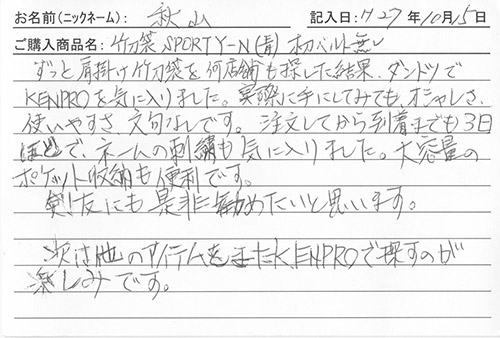 お名前(ニックネーム): 秋山 記入日:H27年10月15日
ご購入商品名: 竹刀袋 SPORTY-N(青) 肩ベルト無し
ずっと肩掛け竹刀袋を何店舗も探した結果、ダントツで
KENPROを気に入りました。実際に手にしてみてもオシャレさ、
使いやすさ、文句なしです。注文してから到着までも3日
ほどで、ネームの刺繍も気に入りました。大容量の
ポケット収納も便利です。
剣友にも是非勧めたいと思います。
次は他のアイテムをまたKENPROで探すのが
楽しみです。